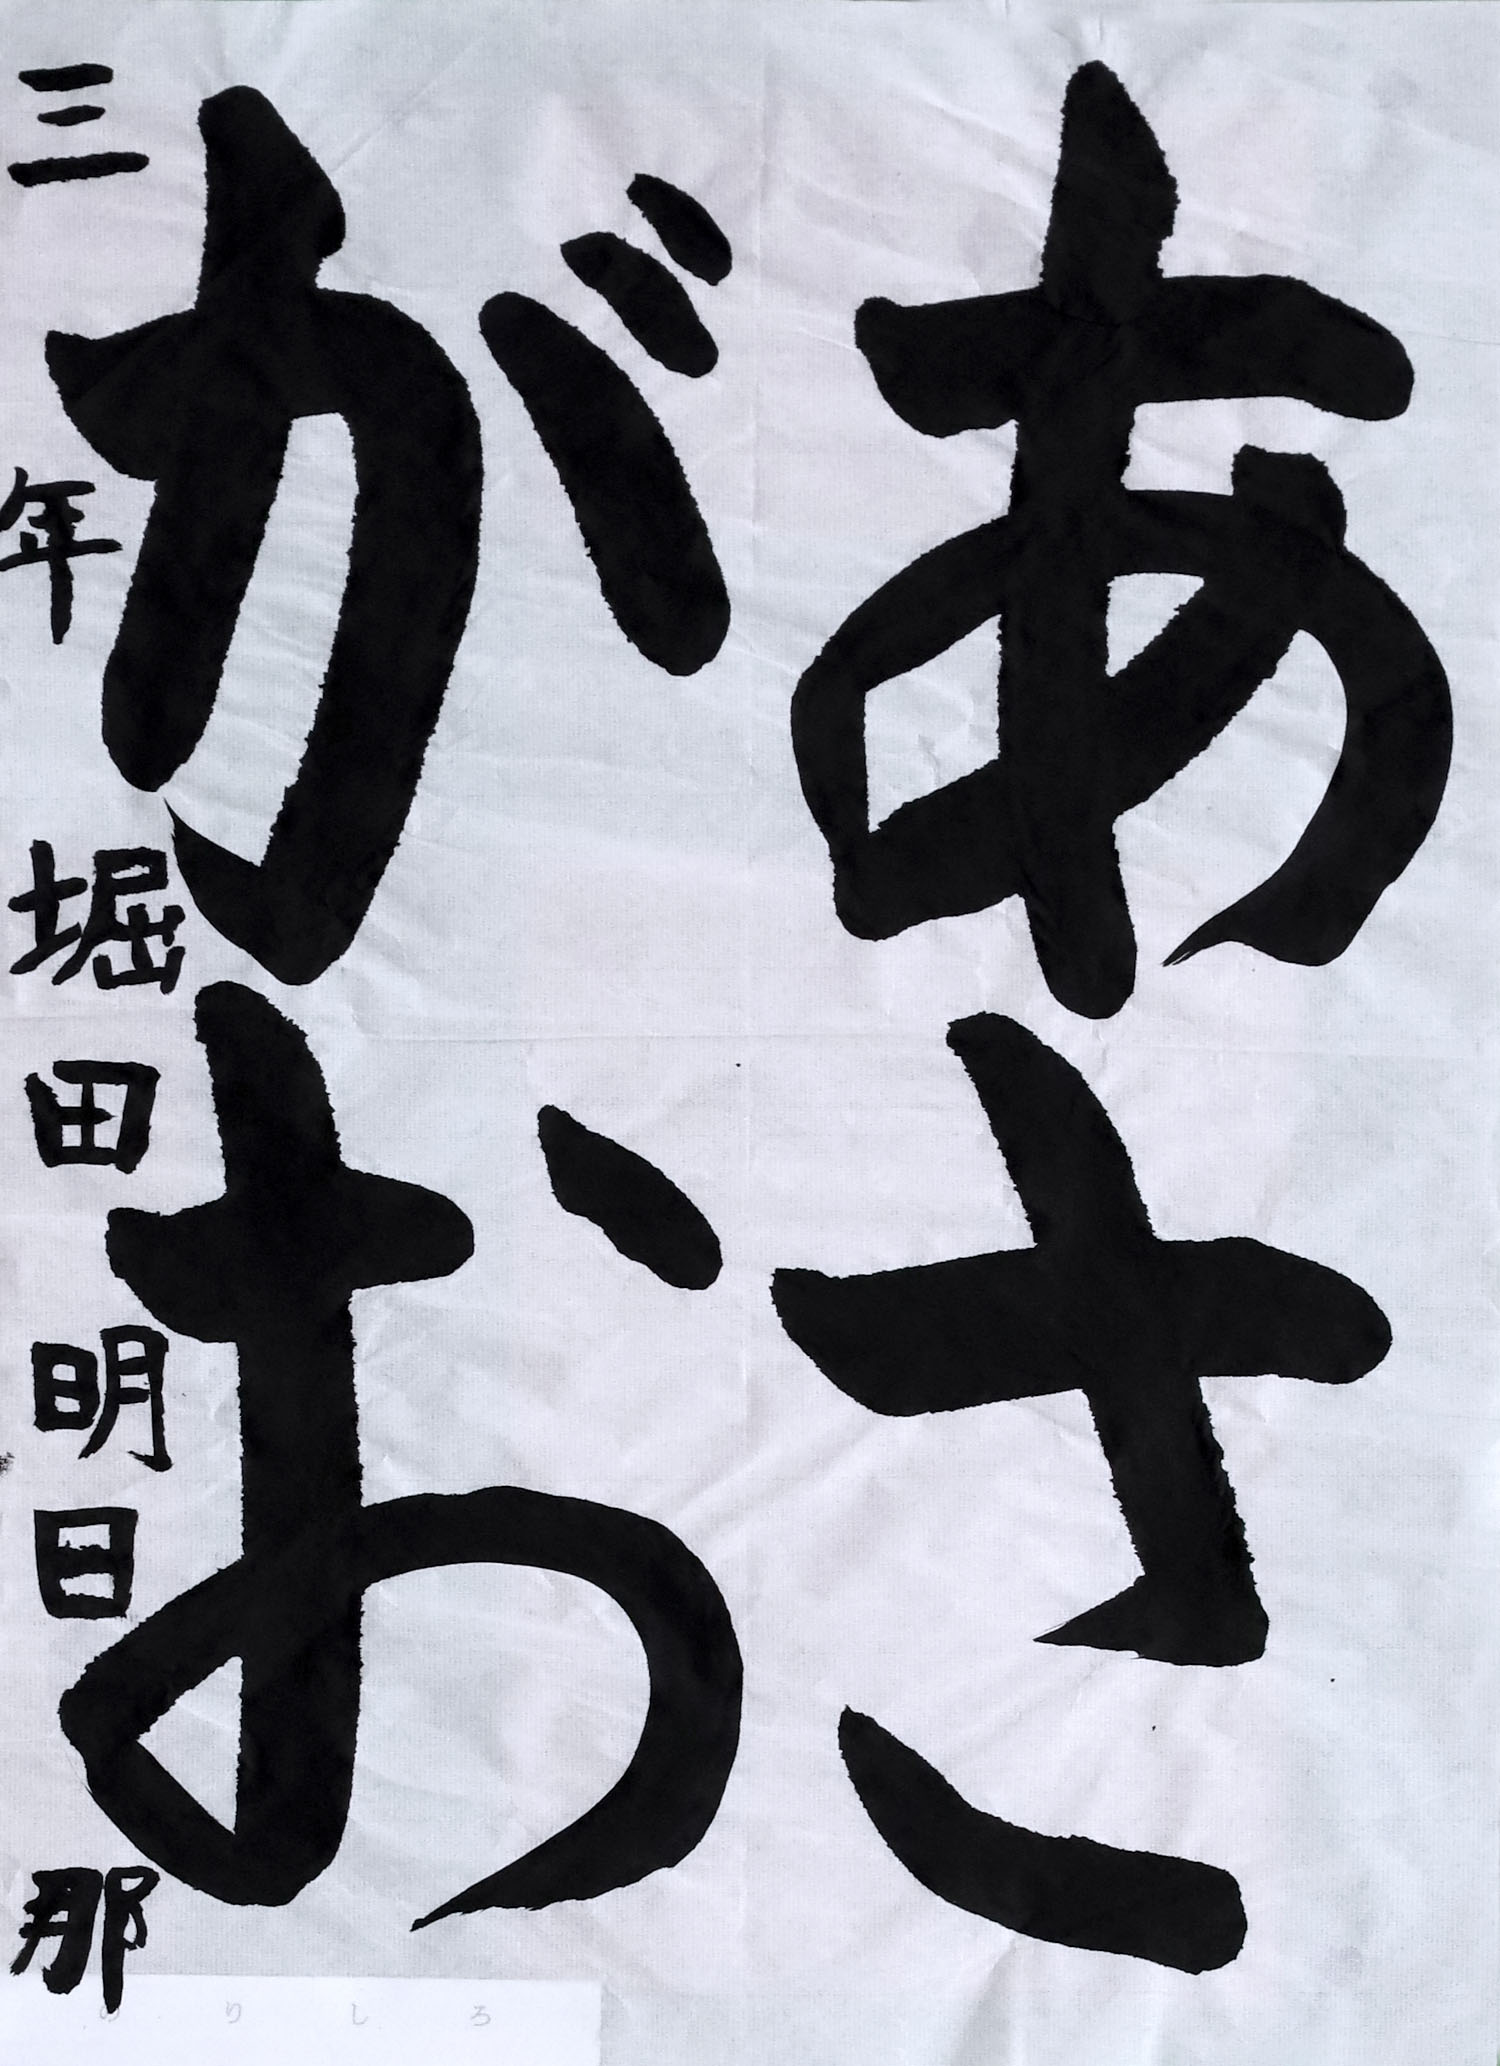 あさ
がお
三年 堀田明日那
のりしろ